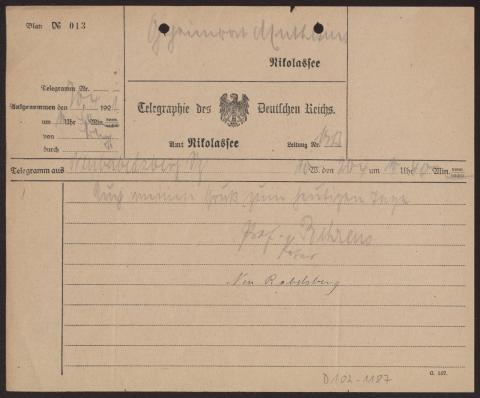 Blatt № 013
Geheimrat Muthesius
Nikolassee
Telegramm Nr.
Aufgenommen den 20/4 190
um Uhr Min.
von
durch
Telegraphie des Deutschen Reichs.
Amt Nikolassee
Leitung Nr.
Telegramm aus Neubabelsberg
W. den 20/4 um Uhr 40 Min.
Auch meinen Gruß zum heutigen Tage
Prof. Behrens
Neu Babelsberg
C. 187.
D102-1187